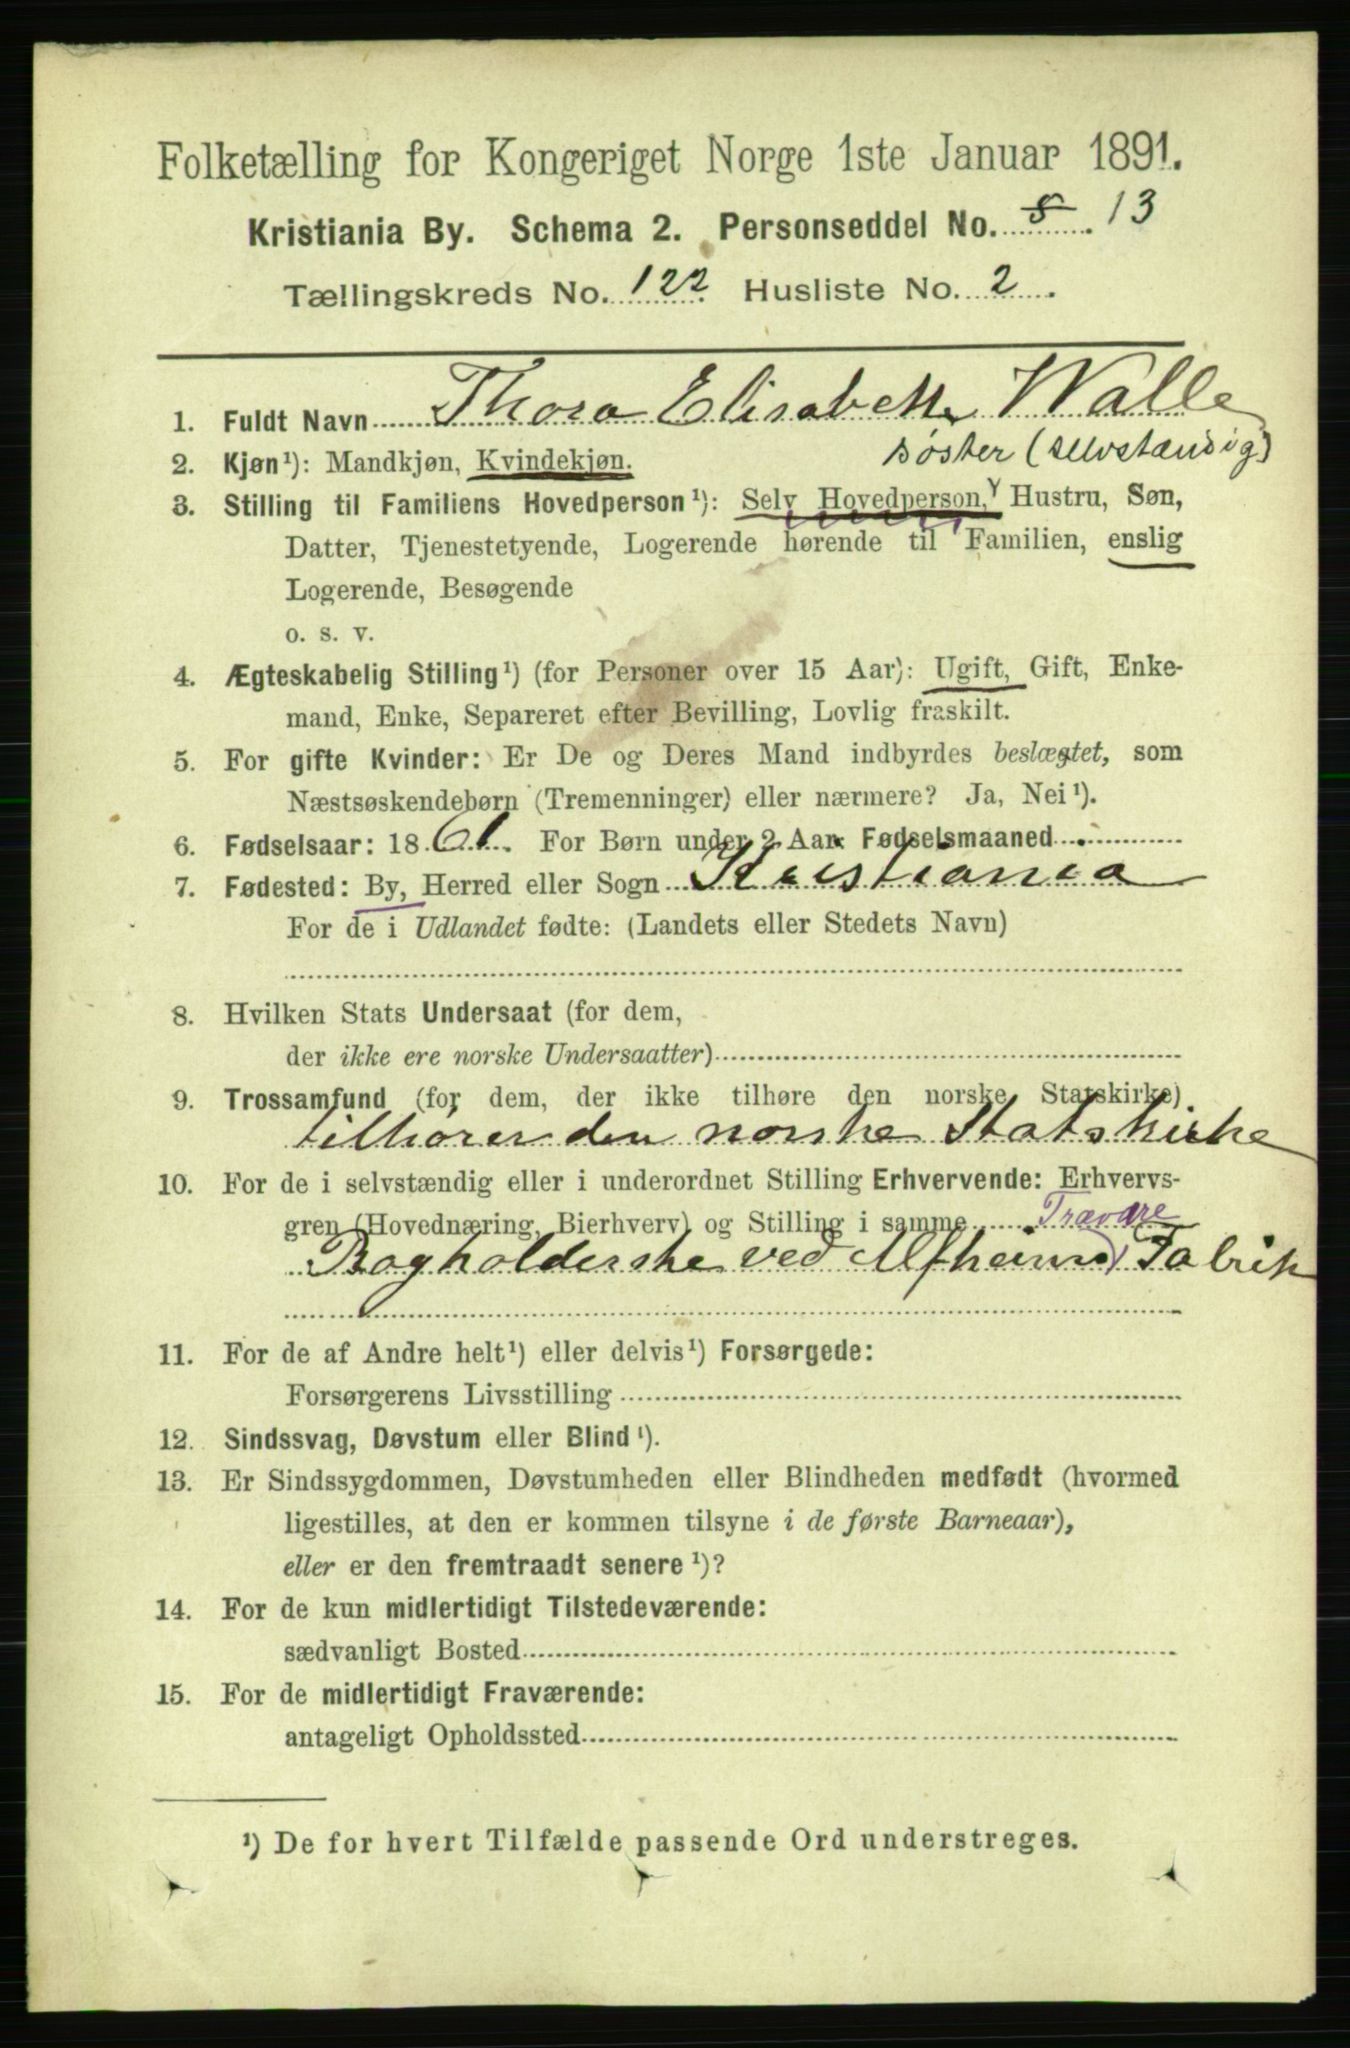 Folketælling for Kongeriget Norge 1ste Januar 1891.
Kristiania By. Schema 2. Personseddel No. 8 13
Tællingskreds No. 122 Husliste No. 2.
1. Fuldt Navn Thora Elisabeth Walle
søster (selvstændig)
2. Kjøn¹): Mandkjøn, Kvindekjøn.
3. Stilling til Familiens Hovedperson¹): Selv Hovedperson, Hustru, Søn,
Datter, Tjenestetyende, Logerende hørende til Familien, enslig
Logerende, Besøgende
o. s. v.
4. Ægteskabelig Stilling¹) (for Personer over 15 Aar): Ugift, Gift, Enke-
mand, Enke, Separeret efter Bevilling, Lovlig fraskilt.
5. For gifte Kvinder: Er De og Deres Mand indbyrdes beslægtet, som
Næstsøskendebørn (Tremenninger) eller nærmere? Ja, Nei¹).
6. Fødselsaar: 1861. For Børn under 2 Aar: Fødselsmaaned
7. Fødested: By, Herred eller Sogn Kristiania
For de i Udlandet fødte: (Landets eller Stedets Navn)
8. Hvilken Stats Undersaat (for dem,
der ikke ere norske Undersaatter)
9. Trossamfund (for dem, der ikke tilhøre den norske Statskirke)
tilhører den norske Statskirke
10. For de i selvstændig eller i underordnet Stilling Erhvervende: Erhvervs-
gren (Hovednæring, Bierhverv) og Stilling i samme Trævare
Bogholderske ved Alfheims Fabrik
11. For de af Andre helt¹) eller delvis¹) Forsørgede:
Forsørgerens Livsstilling
12. Sindssvag, Døvstum eller Blind¹).
13. Er Sindssygdommen, Døvstumheden eller Blindheden medfødt (hvormed
ligestilles, at den er kommen tilsyne i de første Barneaar),
eller er den fremtraadt senere¹)?
14. For de kun midlertidigt Tilstedeværende:
sædvanligt Bosted
15. For de midlertidigt Fraværende:
antageligt Opholdssted
¹) De for hvert Tilfælde passende Ord understreges.